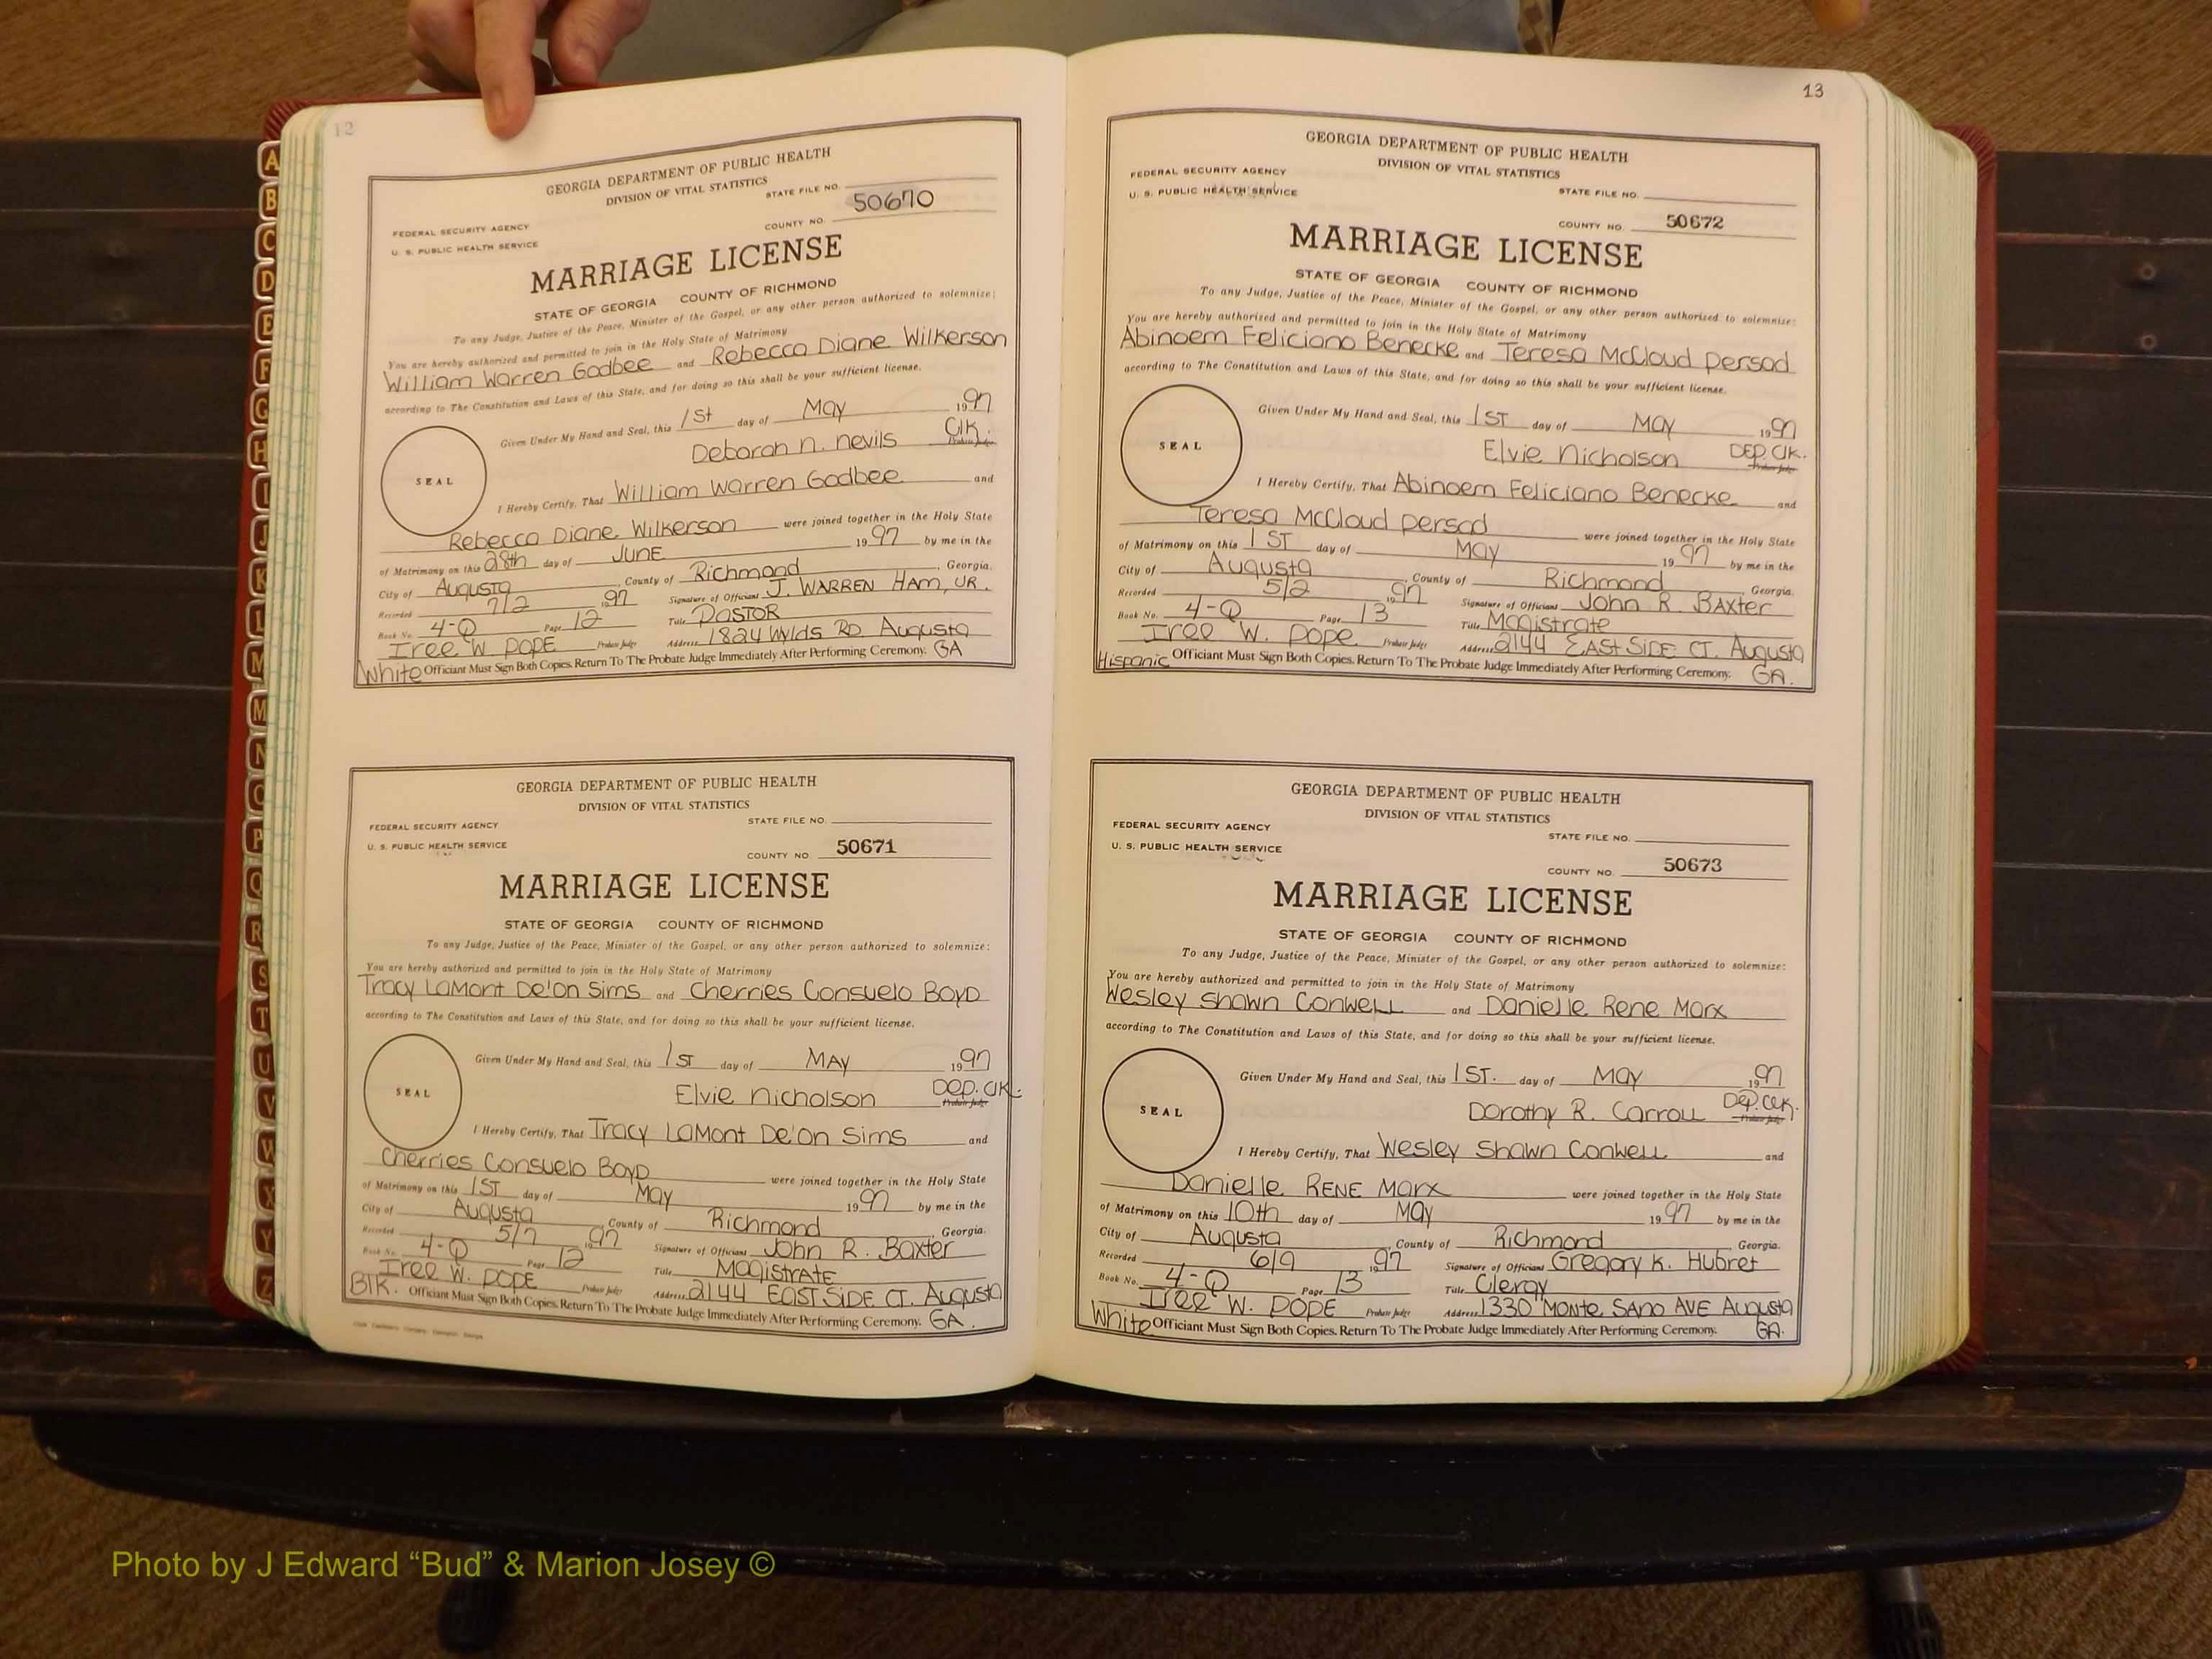 12
GEORGIA DEPARTMENT OF PUBLIC HEALTH
DIVISION OF VITAL STATISTICS
STATE FILE NO.
50670
COUNTY NO.
FEDERAL SECURITY AGENCY
U. S. PUBLIC HEALTH SERVICE
MARRIAGE LICENSE
STATE OF GEORGIA COUNTY OF RICHMOND
To any Judge, Justice of the Peace, Minister of the Gospel, or any other person authorized to solemnize:
You are hereby authorized and permitted to join in the Holy State of Matrimony
William Warren Godbee and Rebecca Diane Wilkerson
according to The Constitution and Laws of this State, and for doing so this shall be your sufficient license.
Given Under My Hand and Seal, this 1st day of May 1997
Deborah N. Nevils Clk. Probate Judge
SEAL
I Hereby Certify, That William Warren Godbee and
Rebecca Diane Wilkerson were joined together in the Holy State
of Matrimony on this 28th day of JUNE 1997 by me in the
City of Augusta, County of Richmond, Georgia.
Recorded 7/2 1997 Signature of Officiant J. WARREN HAM, JR.
Book No. 4-Q Page 12 Title PASTOR
Iree W. POPE Probate Judge Address 1824 Wylds RD Augusta
White Officiant Must Sign Both Copies. Return To The Probate Judge Immediately After Performing Ceremony. GA
GEORGIA DEPARTMENT OF PUBLIC HEALTH
DIVISION OF VITAL STATISTICS
STATE FILE NO.
FEDERAL SECURITY AGENCY
U. S. PUBLIC HEALTH SERVICE
COUNTY NO 50671
MARRIAGE LICENSE
STATE OF GEORGIA COUNTY OF RICHMOND
To any Judge, Justice of the Peace, Minister of the Gospel, or any other person authorized to solemnize:
You are hereby authorized and permitted to join in the Holy State of Matrimony
Tracy LaMont De'on Sims and Cherries Consuelo BoyD
according to The Constitution and Laws of this State, and for doing so this shall be your sufficient license.
Given Under My Hand and Seal, this 1ST day of MAY 1997
Elvie Nicholson DEP. Clk. Probate Judge
SEAL
I Hereby Certify, That Tracy LaMont De'on Sims and
Cherries Consuelo BoyD were joined together in the Holy State
of Matrimony on this 1ST day of May 1997 by me in the
City of Augusta, County of Richmond, Georgia.
Recorded 5/7 1997 Signature of Officiant John R. Baxter
Book No. 4-Q Page 12 Title MagiSTRATE
Iree W. POPE Probate Judge Address 2144 EAST SiDE CT. Augusta
Blk. Officiant Must Sign Both Copies. Return To The Probate Judge Immediately After Performing Ceremony. GA.
13
GEORGIA DEPARTMENT OF PUBLIC HEALTH
DIVISION OF VITAL STATISTICS
FEDERAL SECURITY AGENCY
U. S. PUBLIC HEALTH SERVICE
STATE FILE NO.
COUNTY NO. 50672
MARRIAGE LICENSE
STATE OF GEORGIA COUNTY OF RICHMOND
To any Judge, Justice of the Peace, Minister of the Gospel, or any other person authorized to solemnize:
You are hereby authorized and permitted to join in the Holy State of Matrimony
Abinoem Feliciano Benecke and Teresa McCloud Persad
according to The Constitution and Laws of this State, and for doing so this shall be your sufficient license.
Given Under My Hand and Seal, this 1ST day of MAY 1997
Elvie Nicholson DEP. Clk. Probate Judge
SEAL
I Hereby Certify, That Abinoem Feliciano Benecke and
Teresa McCloud Persad were joined together in the Holy State
of Matrimony on this 1ST day of May 1997 by me in the
City of Augusta, County of Richmond, Georgia.
Recorded 5/2 1997 Signature of Officiant John R. BAxter
Book No. 4-Q Page 13 Title Magistrate
Iree W. Pope Probate Judge Address 2144 EAST SiDE CT. Augusta
Hispanic Officiant Must Sign Both Copies. Return To The Probate Judge Immediately After Performing Ceremony. GA.
GEORGIA DEPARTMENT OF PUBLIC HEALTH
DIVISION OF VITAL STATISTICS
FEDERAL SECURITY AGENCY
STATE FILE NO.
U. S. PUBLIC HEALTH SERVICE
COUNTY NO. 50673
MARRIAGE LICENSE
STATE OF GEORGIA COUNTY OF RICHMOND
To any Judge, Justice of the Peace, Minister of the Gospel, or any other person authorized to solemnize:
You are hereby authorized and permitted to join in the Holy State of Matrimony
Wesley Shawn Conwell and Danielle Rene Marx
according to The Constitution and Laws of this State, and for doing so this shall be your sufficient license.
Given Under My Hand and Seal, this 1ST. day of MAY 1997
Dorothy R. Carroll Dep. Clk. Probate Judge
SEAL
I Hereby Certify, That Wesley Shawn Conwell and
Danielle RENE Marx were joined together in the Holy State
of Matrimony on this 10th day of May 1997 by me in the
City of Augusta, County of Richmond, Georgia.
Recorded 6/9 1997 Signature of Officiant Gregory K. Hubret
Book No. 4-Q Page 13 Title Clergy
Iree W. POPE Probate Judge Address 1330 Monte SANO AVE Augusta
White Officiant Must Sign Both Copies. Return To The Probate Judge Immediately After Performing Ceremony. GA.
A
B
C
D
E
F
G
H
I
J
K
L
M
M
N
O
P
Q
R
S
T
U
V
W
X
Y
Z
Photo by J Edward “Bud” & Marion Josey ©